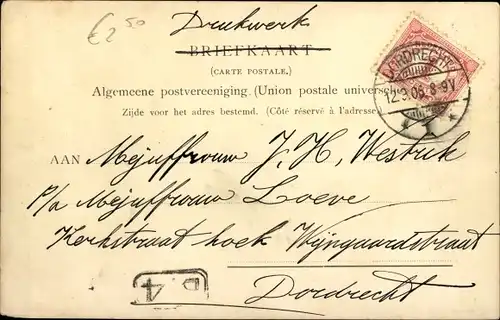 €2.50
Drukwerk
BRIEFKAART
(CARTE POSTALE.)
Algemeene postvereeniging. (Union postale universelle
Zijde voor het adres bestemd. (Côté réservé à l'adresse)
DORDRECHT
12.3.06. 8-9V
1
AAN Mejuffrouw J. H. Westrik
P/a Mejuffrouw Loeve
Kerkstraat hoek Wijngaardstraat
Dordrecht
D
4